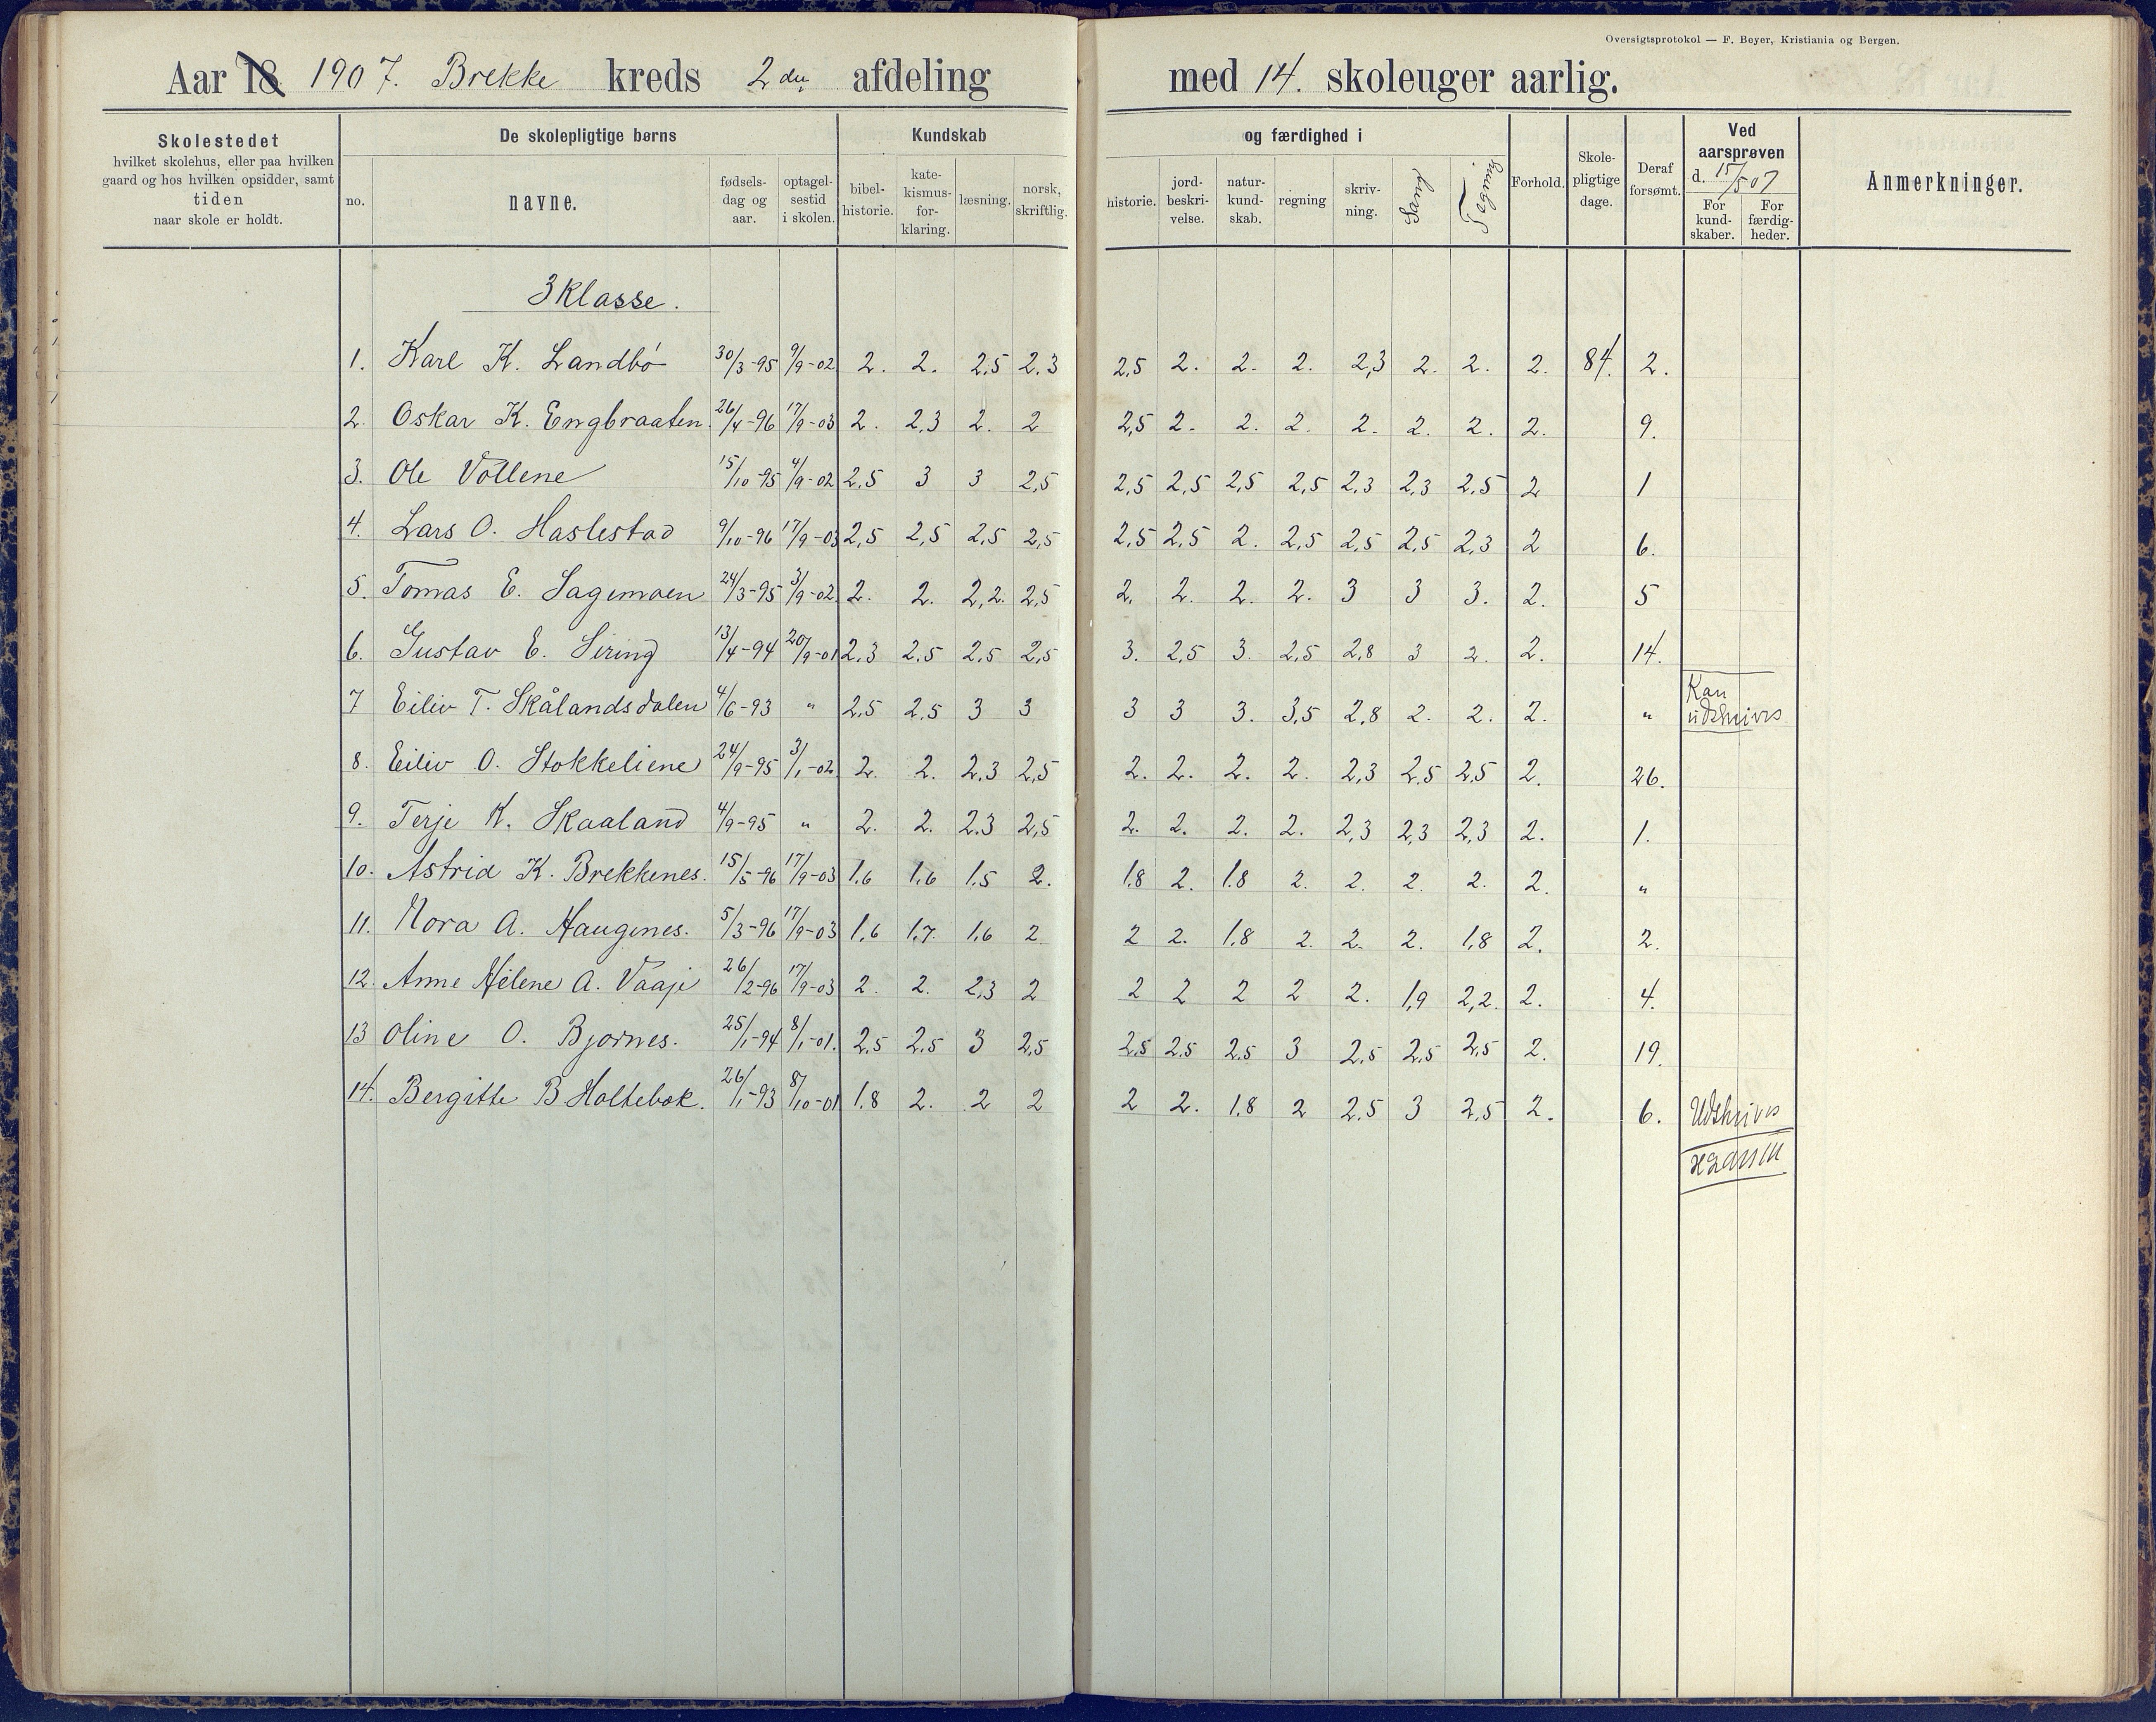 Oversigtsprotokol — F. Beyer, Kristiania og Bergen.
Aar 18 1907. Brekke kreds 2den afdeling med 14. skoleuger aarlig.
Skolestedet
hvilket skolehus, eller paa hvilken
gaard og hos hvilken opsidder, samt
tiden
naar skole er holdt.
De skolepligtige børns
no.
navne.
fødsels-
dag og
aar.
optagel-
sestid
i skolen.
Kundskab
bibel-
historie.
kate-
kismus-
for-
klaring.
læsning.
norsk,
skriftlig.
og færdighed i
historie.
jord-
beskri-
velse.
natur-
kund-
skab.
regning
skriv-
ning.
Sang
Tegning
Forhold.
Skole-
pligtige
dage.
Deraf
forsømt.
Ved
aarsprøven
d. 15/5 07
For
kund-
skaber.
For
færdig-
heder.
Anmerkninger.
3 Klasse.
1. Karl K. Landbö 30/3-95 9/9-02 2. 2. 2,5 2,3 2,5 2. 2. 2. 2,3 2. 2. 2. 84. 2.
2. Oskar K. Engbraaten. 26/4-96 17/9-03 2. 2,3 2. 2 2,5 2. 2. 2. 2. 2. 2. 2. 9.
3. Ole Vollene 15/10-95 4/9-02 2,5 3 3 2,5 2,5 2,5 2,5 2,5 2,3 2,3 2,5 2 1
4. Lars O. Haslestad 9/10-96 17/9-03 2,5 2,5 2,5 2,5 2,5 2,5 2. 2,5 2,5 2,5 2,3 2 6.
5. Tomas E. Sagemoen 24/3-95 3/9-02 2. 2. 2,2. 2,5 2. 2. 2. 2. 3 3 3. 2. 5
6. Gustav E. Siring 13/4-94 20/9-01 2,3 2,5 2,5 2,5 3. 2,5 3. 2,5 2,8 3 2. 2. 14.
7 Eiliv T. Skålandsdalen 4/6-93 " 2,5 2,5 3 3 3 3 3. 3,5 2,8 2. 2. 2. " Kan
udskrives
8. Eiliv O. Stokkeliene 24/9-95 3/1-02 2. 2. 2,3 2,5 2. 2. 2. 2. 2,3 2,5 2,5 2. 26.
9. Terje K. Skaaland 4/9-95 " 2. 2. 2,3 2,5 2. 2. 2. 2. 2,3 2,3 2,3 2. 1.
10. Astrid K. Brekkenes. 15/5-96 17/9-03 1,6 1,6 1,5 2. 1,8 2. 1,8 2. 2. 2. 2. 2. "
11. Nora A. Haugenes. 5/3-96 17/9-03 1,6 1,7. 1,6 2 2 2. 1,8 2. 2. 2. 1,8 2. 2.
12. Anne Helene A. Vaaje 26/2-96 17/9-03 2. 2. 2,3 2 2 2 2 2 2. 1,9 2,2. 2. 4.
13 Oline O. Bjornes. 25/1-94 8/1-01. 2,5 2,5 3 2,5 2,5 2,5 2,5 3 2,5 2,5 2,5 2. 19.
14. Bergitte B Holtebæk. 26/1-93 8/10-01 1,8 2. 2 2 2 2. 1,8 2 2,5 3 2,5 2. 6. Udskrives